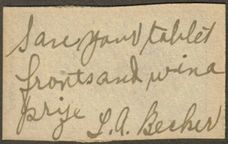 Save your tablet
fronts and win a
prize L.A. Becker